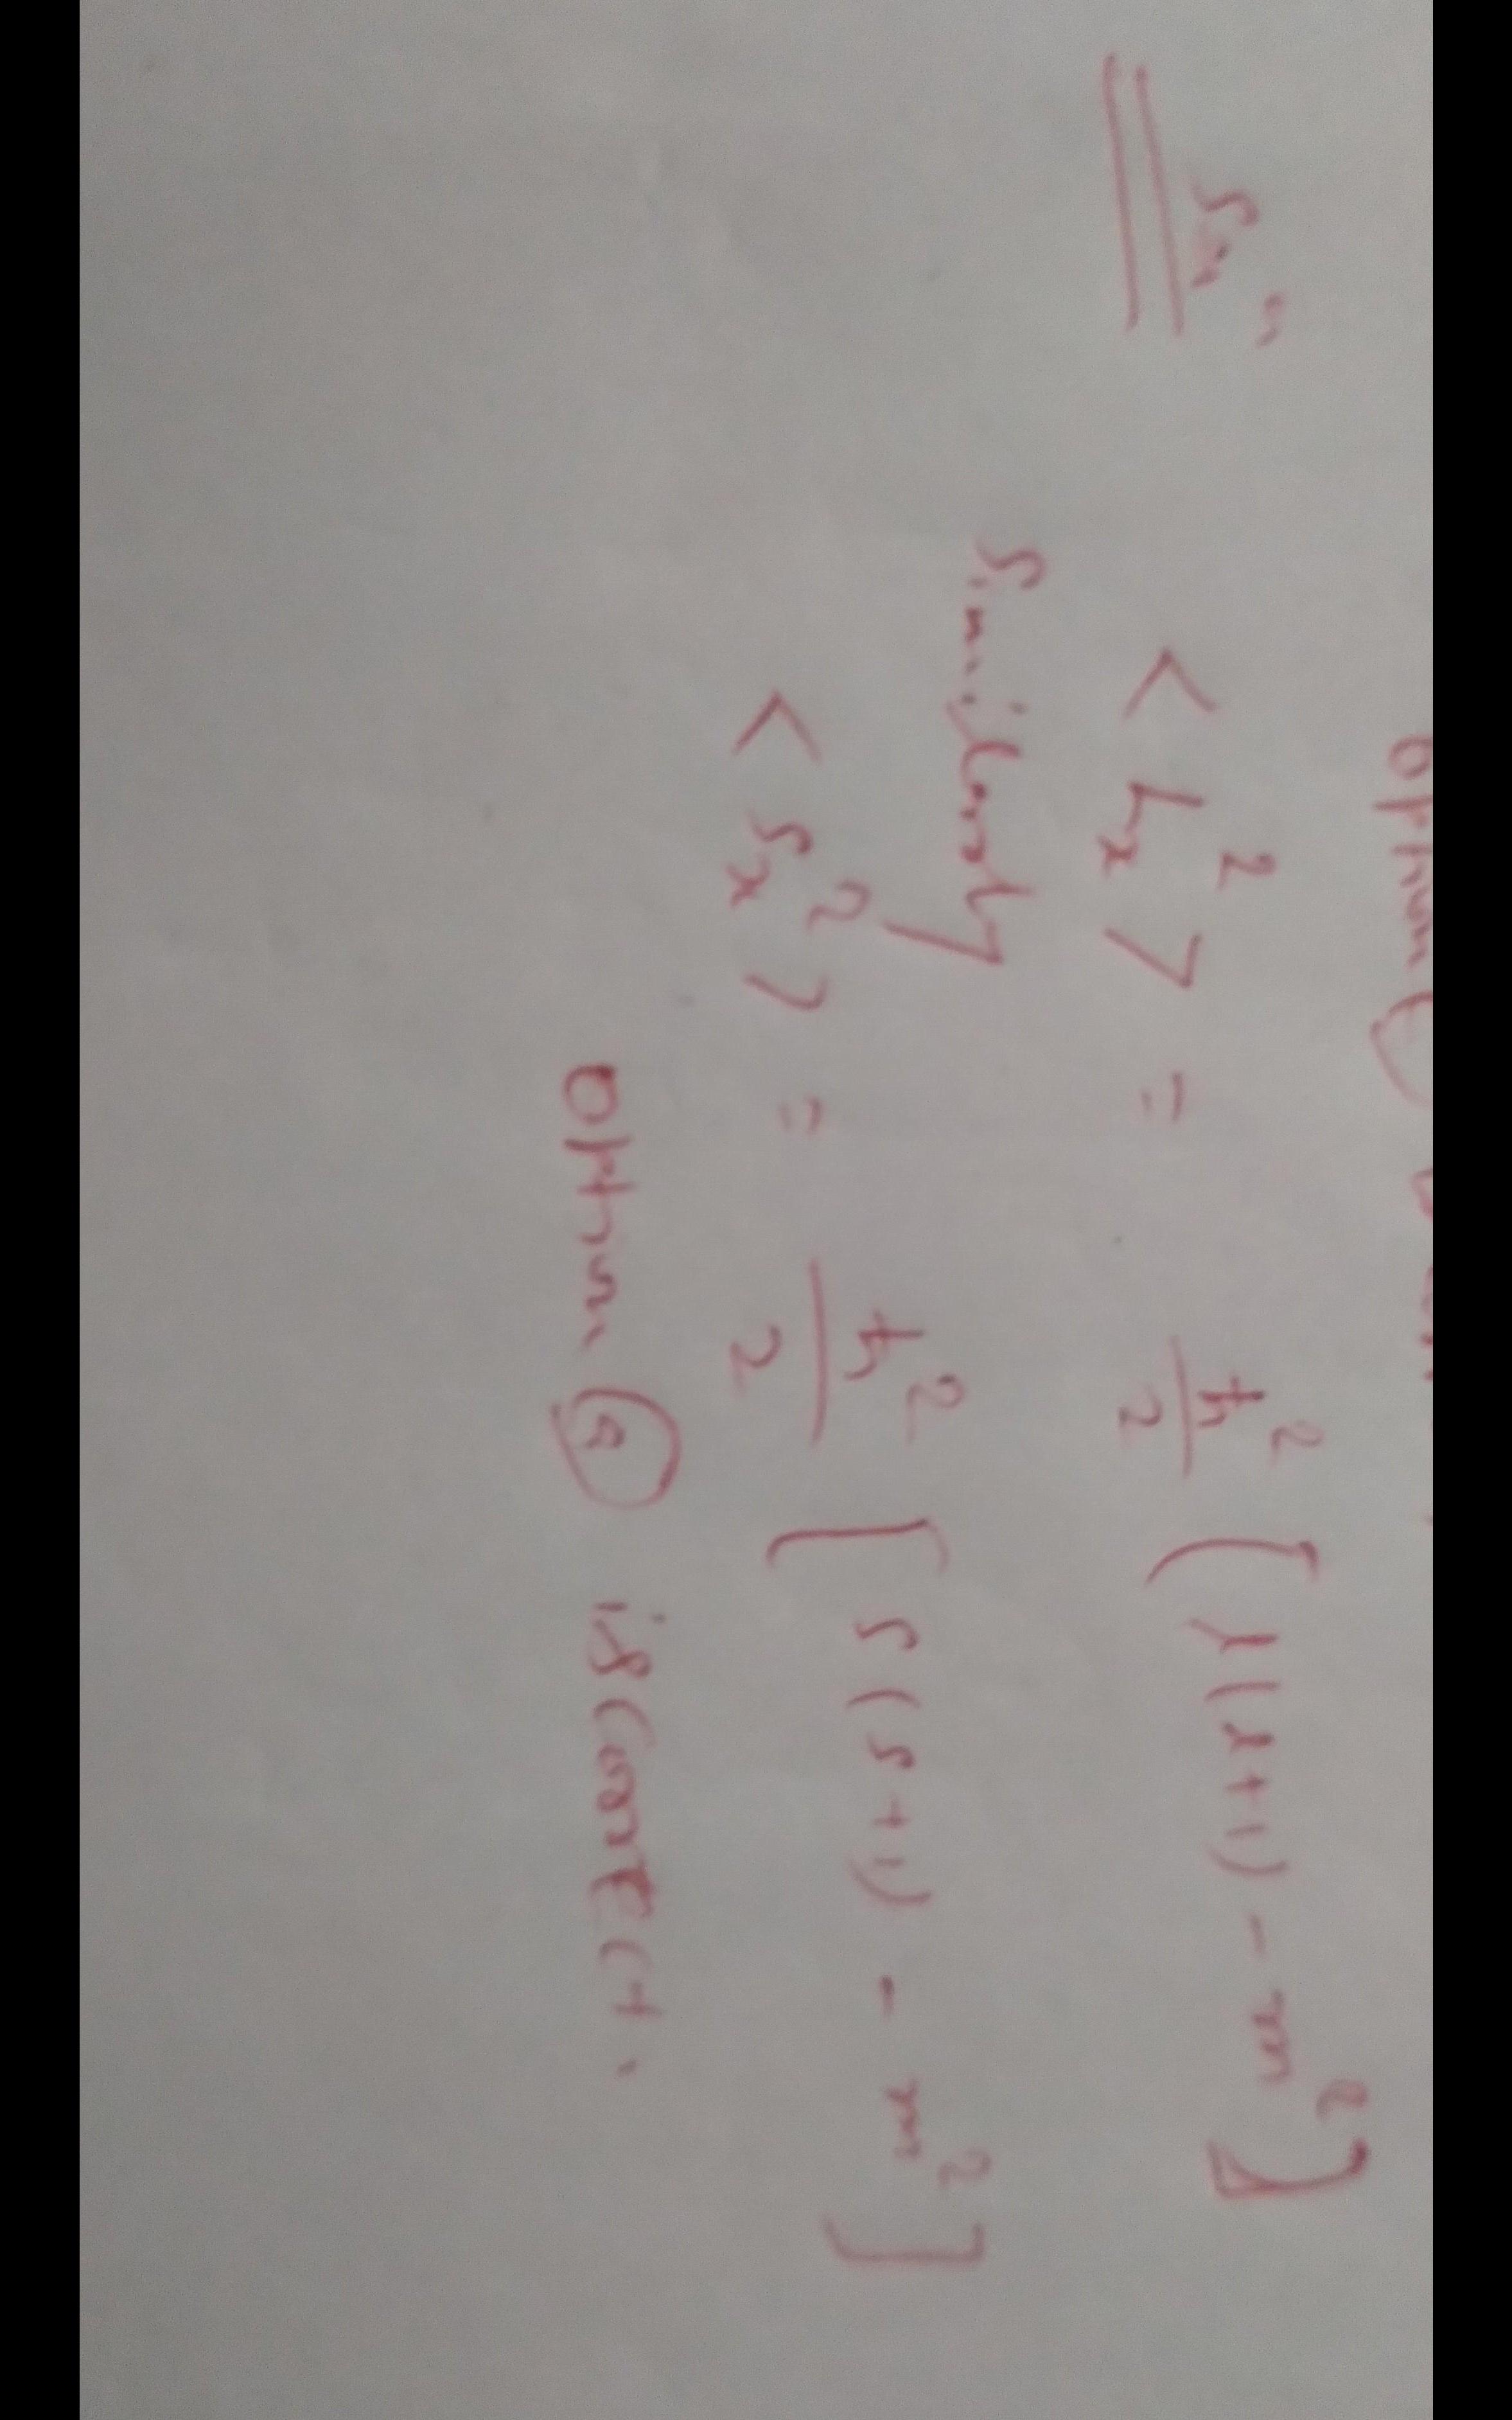 Option
Solⁿ
<Lx²> = ħ²/2 [l(l+1) - m²]
Similarly
<Sx²> = ħ²/2 [s(s+1) - m²]
Option (a) is correct.